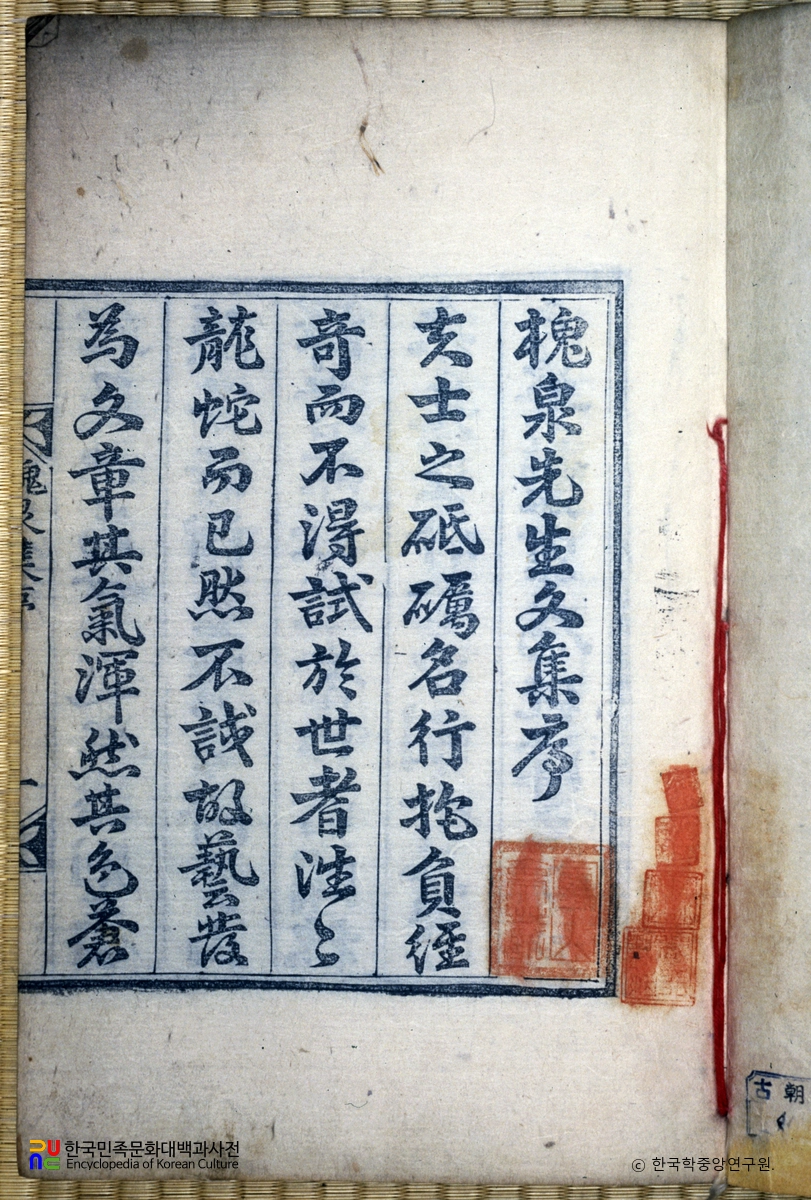 槐泉先生文集序
夫士之砥礪名行抱負經
奇而不得試於世者往〻
龍蛇而已然不試故藝發
為文章其氣渾然其色蒼
槐泉集序
一
古朝
한국민족문화대백과사전
Encyclopedia of Korean Culture
© 한국학중앙연구원